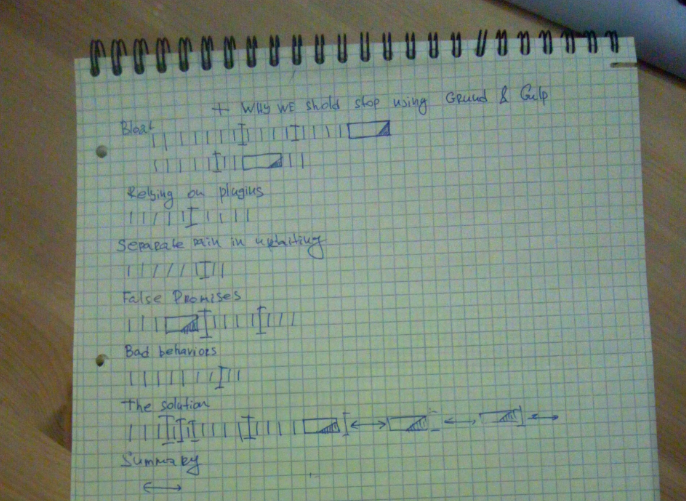 + WHY WE shold stop using Grund & Gulp
Bloat
Relying on plugins
Separate pain in updating
False Promises
Bad behaviors
The solution
Summary